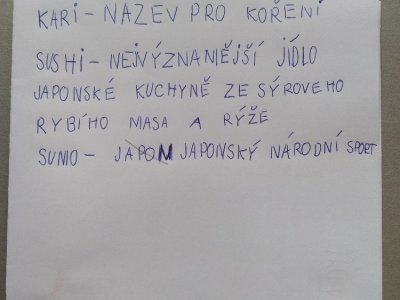 KARI - NÁZEV PRO KOŘENÍ
SUSHI - NEJVÝZNANĚJŠÍ JÍDLO
JAPONSKÉ KUCHYNĚ ZE SÝROVEHO
RYBÍHO MASA A RÝŽE
SUMO - JAPON JAPONSKÝ NÁRODNÍ SPORT